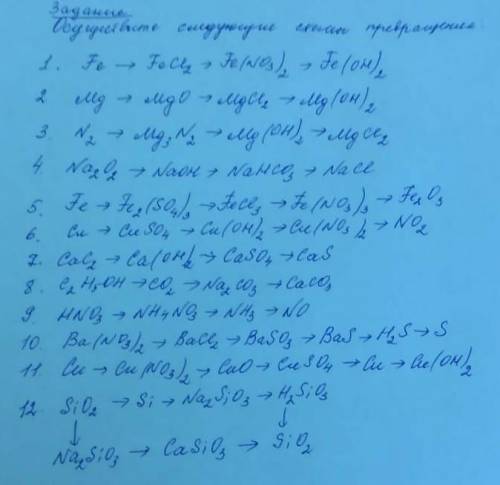 Задание
Осуществите следующие схемы превращение.
1. Fe → FeCl2 → Fe(NO3)2 → Fe(OH)2
2 Mg → MgO → MgCl2 → Mg(OH)2
3. N2 → Mg3N2 → Mg(OH)2 → MgCl2
4 Na2O2 → NaOH → NaHCO3 → NaCl
5. Fe → Fe2(SO4)3 → FeCl3 → Fe(NO3)3 → Fe2O3
6. Cu → CuSO4 → Cu(OH)2 → Cu(NO3)2 → NO2
7. CaC2 → Ca(OH)2 → CaSO4 → CaS
8. C2H5OH → CO2 → Na2CO3 → CaCO3
9. HNO3 → NH4NO3 → NH3 → NO
10. Ba(NO3)2 → BaCl2 → BaSO3 → BaS → H2S → S
11. Cu → Cu(NO3)2 → CuO → CuSO4 → Cu → Cu(OH)2
12. SiO2 → Si → Na2SiO3 → H2SiO3
↓ ↓
Na2SiO3 → CaSiO3 → SiO2